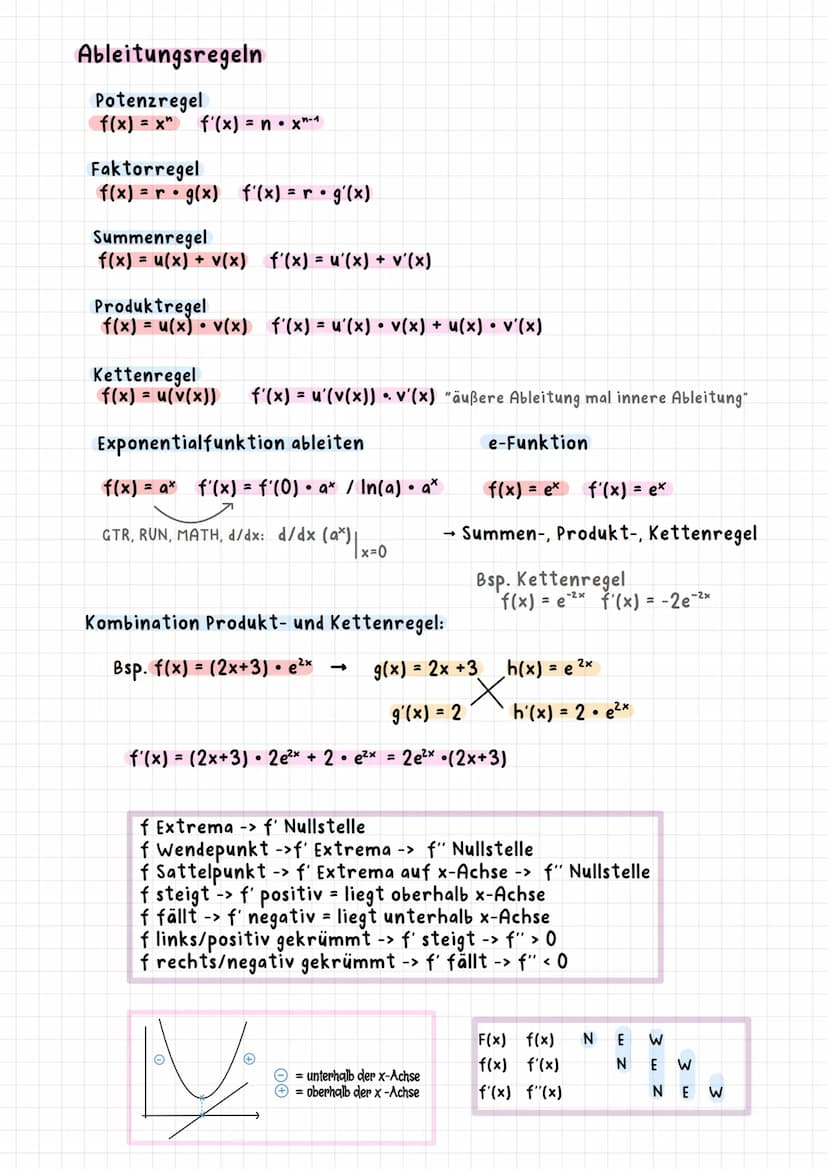 Ableitungsregeln
Potenzregel
f(x) = xⁿ f'(x) = n • xⁿ⁻¹
Faktorregel
f(x) = r • g(x) f'(x) = r • g'(x)
Summenregel
f(x) = u(x) + v(x) f'(x) = u'(x) + v'(x)
Produktregel
f(x) = u(x) • v(x) f'(x) = u'(x) • v(x) + u(x) • v'(x)
Kettenregel
f(x) = u(v(x)) f'(x) = u'(v(x)) • v'(x) "äußere Ableitung mal innere Ableitung"
Exponentialfunktion ableiten
f(x) = aˣ f'(x) = f'(0) • aˣ / ln(a) • aˣ
GTR, RUN, MATH, d/dx: d/dx (aˣ)|x=0
e-Funktion
f(x) = eˣ f'(x) = eˣ
→ Summen-, Produkt-, Kettenregel
Bsp. Kettenregel
f(x) = e⁻²ˣ f'(x) = -2e⁻²ˣ
Kombination Produkt- und Kettenregel:
Bsp. f(x) = (2x+3) • e²ˣ → g(x) = 2x +3 h(x) = e ²ˣ
g'(x) = 2 h'(x) = 2 • e²ˣ
f'(x) = (2x+3) • 2e²ˣ + 2 • e²ˣ = 2e²ˣ •(2x+3)
f Extrema -> f' Nullstelle
f Wendepunkt ->f' Extrema -> f'' Nullstelle
f Sattelpunkt -> f' Extrema auf x-Achse -> f'' Nullstelle
f steigt -> f' positiv = liegt oberhalb x-Achse
f fällt -> f' negativ = liegt unterhalb x-Achse
f links/positiv gekrümmt -> f' steigt -> f'' > 0
f rechts/negativ gekrümmt -> f' fällt -> f'' < 0
⊖ ⊕
⊖ = unterhalb der x-Achse
⊕ = oberhalb der x -Achse
F(x) f(x) N E W
f(x) f'(x) N E W
f'(x) f''(x) N E W